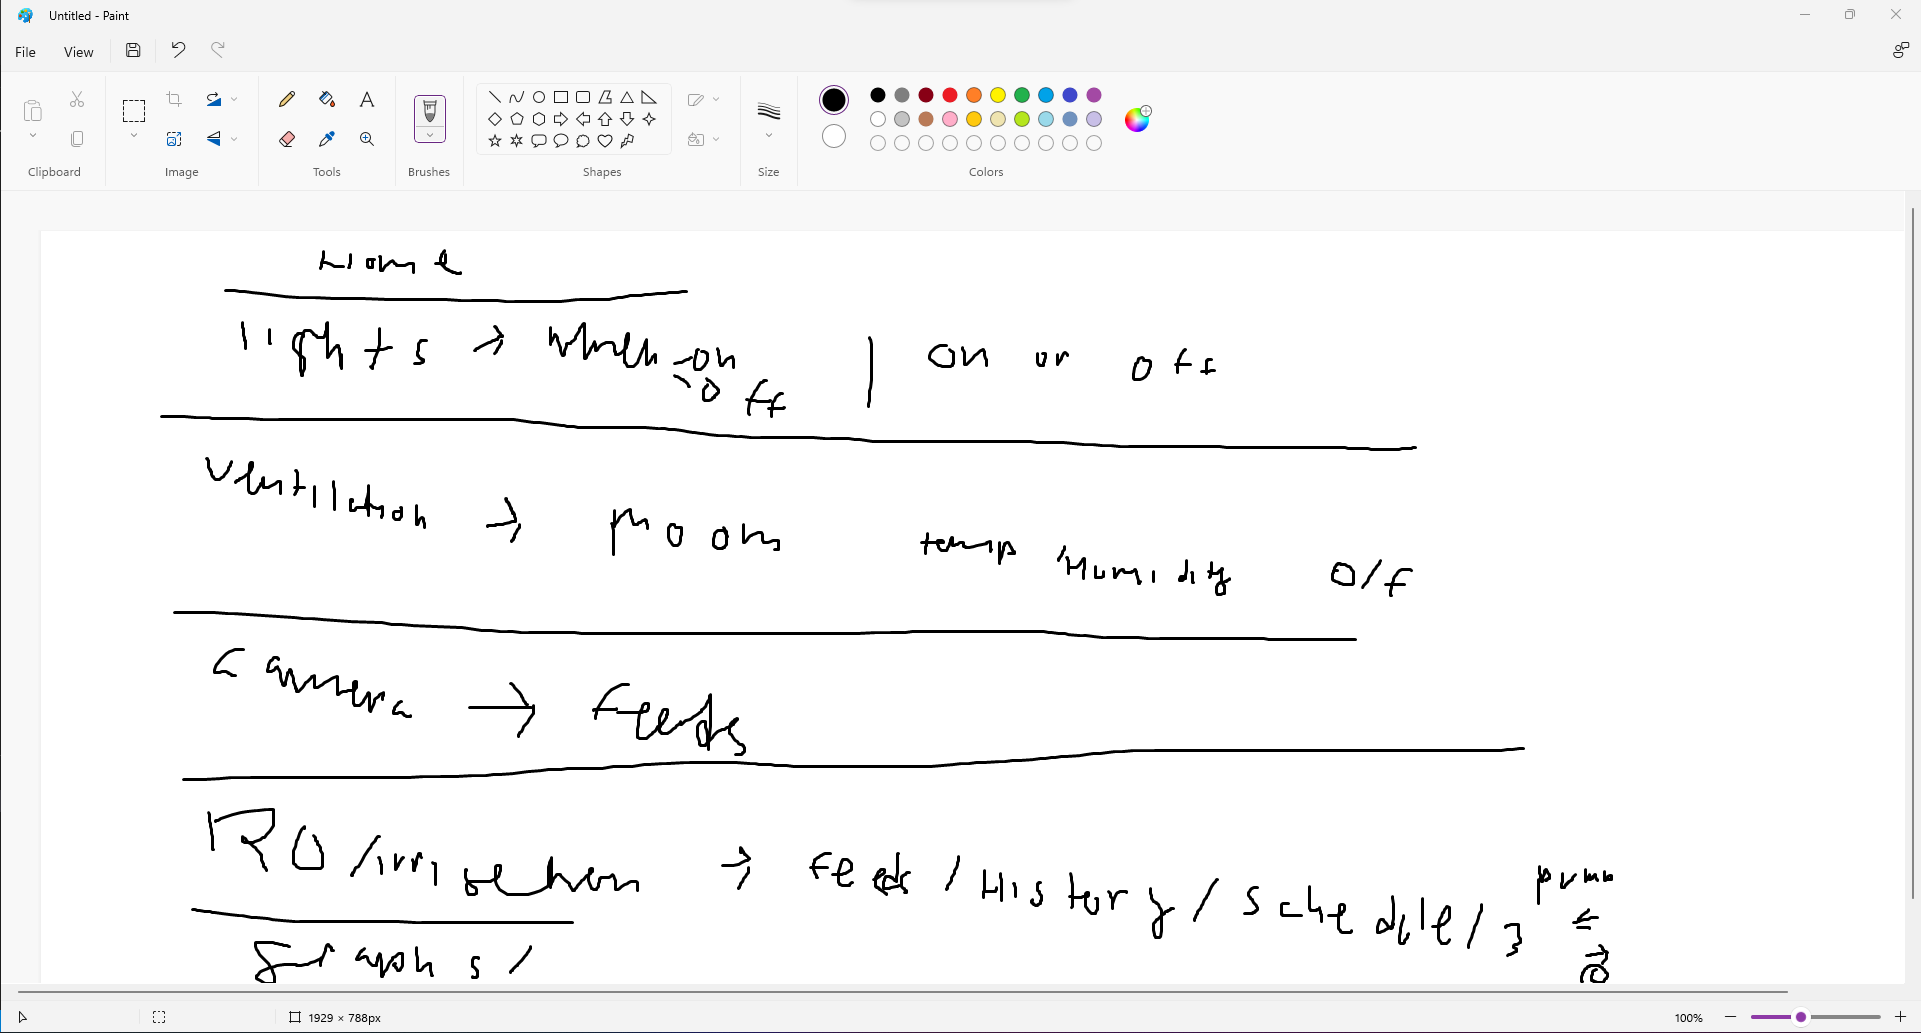 Untitled - Paint
File View
Clipboard Image Tools Brushes Shapes Size Colors
Home
lights → when -on | on or off
- off
Ventilation → room temp / Humidity O/F
Camera → Feeds
RO/irrigation → feeds / History / Schedule / 3 pump
graphs /
1929 × 788px 100%